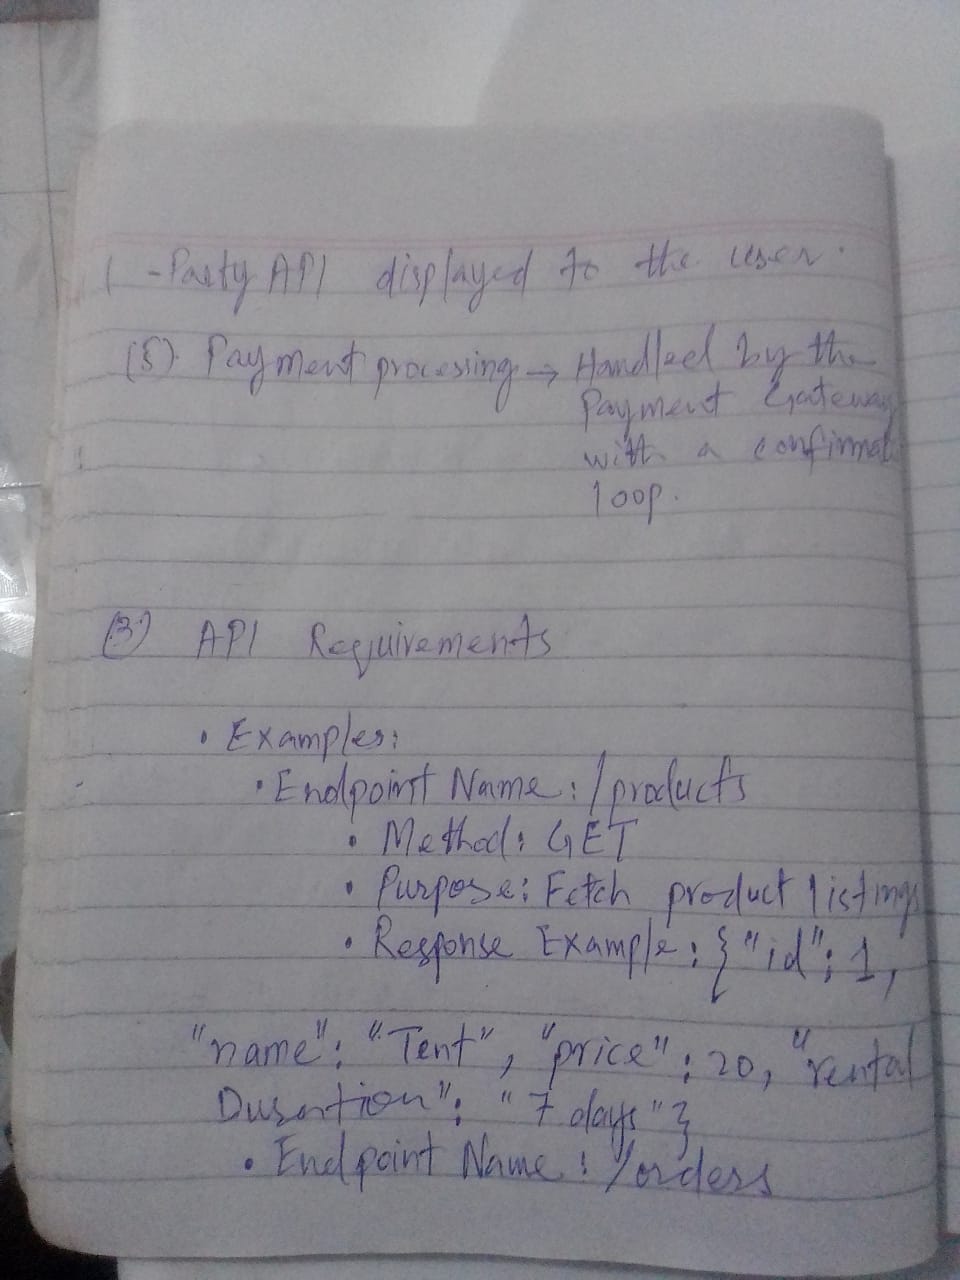 -Party API displayed to the user.
(5). Payment processing → Handled by the
Payment Gateway
with a confirmat
loop.
(3) API Requirements
• Examples:
• Endpoint Name: /products
• Method: GET
• Purpose: Fetch product listings
• Response Example: {"id": 1,
"name": "Tent", "price": 20, "rental
Duration": "7 days"}
• Endpoint Name: /orders